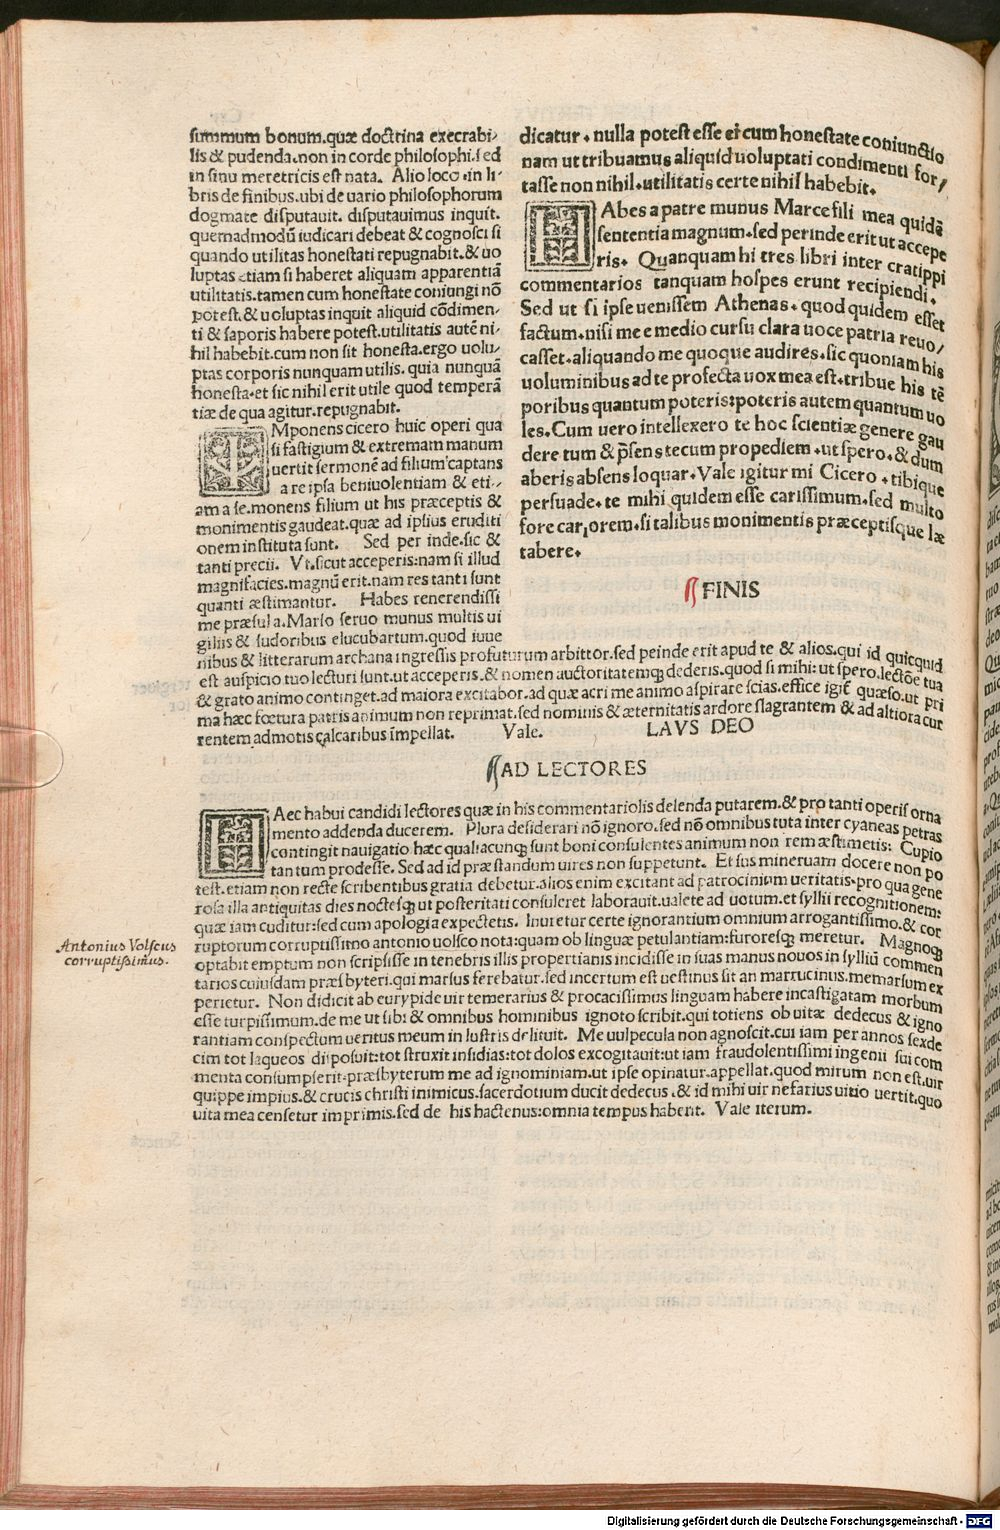 summum bonum.quæ doctrina execrabi-
lis & pudenda.non in corde philosophi.sed
in sinu meretricis est nata. Alio loco in li-
bris de finibus.ubi de uario philosophorum
dogmate disputauit. disputauimus inquit.
quemadmodū iudicari debeat & cognosci si
quando utilitas honestati repugnabit.& uo
luptas etiam si haberet aliquam apparentiā
utilitatis.tamen cum honestate coniungi nō
potest.& uoluptas inquit aliquid cōdimen-
ti & saporis habere potest.utilitatis autē ni-
hil habebit.cum non sit honesta.ergo uolu-
ptas corporis nunquam utilis. quia nunquā
honesta.et sic nihil erit utile quod temperā
tiæ de qua agitur.repugnabit.
IMponens cicero huic operi qua
si fastigium & extremam manum
uertit sermonē ad filium captans
a re ipsa beniuolentiam & eti-
am a se.monens filium ut his præceptis &
monimentis gaudeat.quæ ad ipsius eruditi
onem instituta sunt. Sed per inde.sic &
tanti precii. Vt.sicut acceperis:nam si illud
magnifacies.magnū erit.nam res tanti sunt
quanti æstimantur. Habes reuerendissi
me præsul a.Marso seruo munus multis ui
giliis & sudoribus elucubartum.quod iuue
nibus & litterarum archana ingressis profuturum arbittor.sed peinde erit apud te & alios.qui id quicquid
est auspicio tuo lecturi sunt.ut acceperis.& nomen auctoritatemq; dederis.quod si mihi:ut spero.lectōe tua
& grato animo continget.ad maiora excitabor.ad quæ acri me animo aspirare scias.effice igiť quæso.ut pri
ma hæc fœtura patris animum non reprimat.sed nominis & æternitatis ardore flagrantem & ad altiora cur
rentem admotis calcaribus impellat. Vale. LAVS DEO
dicatur. nulla potest esse ei cum honestate coniunctio
nam ut tribuamus aliquid uoluptati condimenti for/
tasse non nihil.utilitatis certe nihil habebit.
HAbes a patre munus Marce fili mea quidē
sententia magnum.sed perinde erit ut accepe
ris. Quanquam hi tres libri inter cratippi
commentarios tanquam hospes erunt recipiendi.
Sed ut si ipse uenissem Athenas. quod quidem esset
factum.nisi me e medio cursu clara uoce patria reuo/
casset.aliquando me quoque audires.sic quoniam his
uoluminibus ad te profecta uox mea est.tribue his tē
poribus quantum poteris:poteris autem quantum uo
les.Cum uero intellexero te hoc scientiæ genere gau
dere tum & p̄sens tecum propediem.ut spero.& dum
aberis absens loquar.Vale igitur mi Cicero . tibique
persuade.te mihi quidem esse carissimum.sed multo
fore cariorem.si talibus monimentis præceptisque læ
tabere.
FINIS
AD LECTORES
HAec habui candidi lectores quæ in his commentariolis delenda putarem.& pro tanti operis orna
mento addenda ducerem. Plura desiderari nō ignoro.sed nō omnibus tuta inter cyaneas petras
contingit nauigatio hæc qualiacunq; sunt boni consulentes animum non rem æstimetis: Cupio
tantum prodesse. Sed ad id præstandum uires non suppetunt. Et sus mineruam docere non po
test.etiam non recte scribentibus gratia debetur.alios enim excitant ad patrocinium ueritatis.pro qua gene
rosa illa antiquitas dies noctesq; ut posteritati consuleret laborauit.ualete ad uotum.et syllii recognitionem:
quæ iam cuditur:sed cum apologia expectetis. Inuretur certe ignorantium omnium arrogantissimo.& cor
ruptorum corruptissimo antonio uolsco nota:quam ob linguæ petulantiam:furoresq; meretur. Magnoq;
optabit emptum non scripsisse in tenebris illis propertianis incidisse in suas manus nouos in sylliū commen
tarios cuiusdam præsbyteri.qui marsus ferebatur.sed incertum est uestinus sit an marrucinus.memarsum ex
perietur. Non didicit ab eurypide uir temerarius & procacissimus linguam habere incastigatam morbum
esse turpissimum.de me ut sibi & omnibus hominibus ignoto scribit.qui totiens ob uitæ dedecus & igno
rantiam conspectum ueritus meum in lustris delituit. Me uulpecula non agnoscit.cui iam per annos sexde
cim tot laqueos disposuit:tot struxit insidias:tot dolos excogitauit:ut iam fraudolentissimi ingenii sui com
menta consumpserit.præsbyterum me ad ignominiam.ut ipse opinatur.appellat.quod mirum non est.uir
quippe impius.& crucis christi inimicus.sacerdotium ducit dedecus.& id mihi uir nefarius uitio uertit.quo
uita mea censetur imprimis.sed de his hactenus:omnia tempus habent. Vale iterum.
Antonius Volscus
corruptissimus.
Digitalisierung gefördert durch die Deutsche Forschungsgemeinschaft - DFG